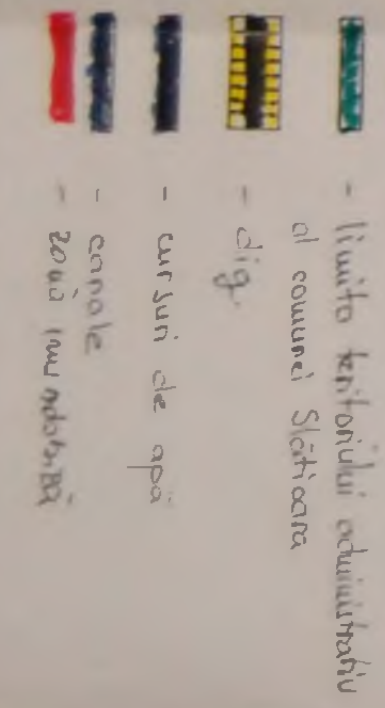 - limita teritoriului administrativ
al comunei Slătioara
- dig
- cursuri de apă
- canale
- zonă inundabilă